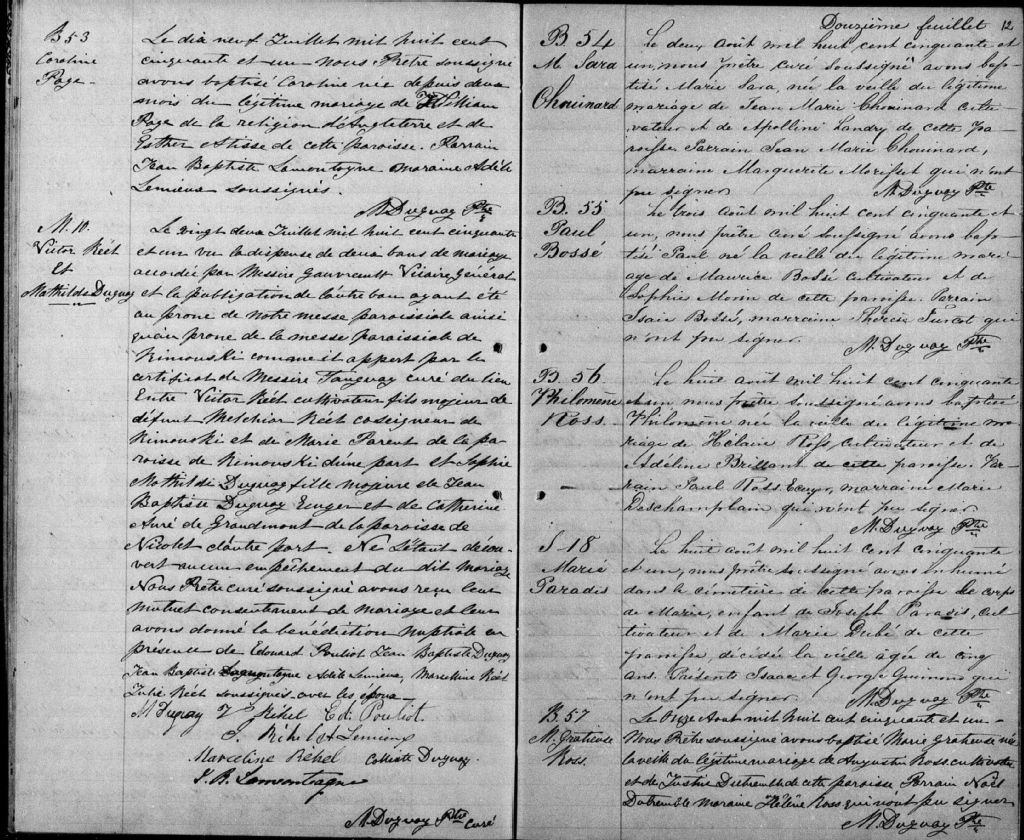 B 53
Caroline
Page
Le dix neuf Juillet mil huit cent
cinquante et un nous Prêtre soussigné
avons baptisé Caroline née depuis deux
mois du légitime mariage de William
Page de la religion d'Angleterre et de
Esther de cette paroisse. Parrain
Jean Baptiste Lamontagne maraine Adèle
Lemieux soussignés.
M. Duguay Ptre
M. 10.
Victor Réèl
et
Mathilde Duguay
Le vingt deux Juillet mil huit cent cinquante
et un vu la dispense de deux bans de mariage
accordée par Messire Gauvreault Vicaire Général
et la publication de l'autre ban ayant été
au prone de notre messe paroissiale ainsi
qu'au prone de la messe paroissiale de
Rimouski comme il appert par le
certificat de Messire Tanguay curé du lieu
Entre Victor Réèl cultivateur fils majeur de
défunt Melchior Réèl coseigneur de
Rimouski et de Marie Parent de la pa-
roisse de Rimouski d'une part et Sophie
Mathilde Duguay fille majeure de Jean
Baptiste Duguay Ecuyer et de Catherine
de Grandmont de la paroisse de
Nicolet d'autre part. Ne s'étant décou-
vert aucun empêchement du dit mariage
Nous Prêtre curé soussigné avons reçu leur
mutuel consentement de mariage et leur
avons donné la bénédiction nuptiale en
présence de Edouard Pouliot Jean Baptiste Duguay
Jean Baptiste Lamontagne Adèle Lemieux, Marceline Réèl
Julie Réèl soussignés avec les époux
M Duguay V Réhel Ed. Pouliot
J. Réhel A Lemieux
Marceline Réhel Duguay
J. B. Lamontagne
M. Duguay Ptre curé
Douzième feuillet 12
B. 54
M. Sara
Chouinard
Le deux Août mil huit cent cinquante et
un, nous prêtre curé soussigné avons bap-
tisé Marie Sara, née la veille du légitime
mariage de Jean Marie Chouinard culti-
vateur & de Apolline Landry de cette pa-
roisse Parrain Jean Marie Chouinard,
marraine Marguerite Morisset qui n'ont
pu signer M. Duguay Ptre
B. 55
Paul
Bossé
Le trois août mil huit cent cinquante et
un, nous prêtre curé soussigné avons bap-
tisé Paul né la veille du légitime mari-
age de Maurice Bossé cultivateur et de
Sophie Morin de cette paroisse. Parrain
Isaïe Bossé, marraine Thérèse Turcot qui
n'ont pu signer. M. Duguay Ptre
B. 56
Philomène
Ross
Le huit août mil huit cent cinquante
et un nous prêtre soussigné avons baptisé
Philomène née la veille du légitime ma-
riage de Hélaire Ross, cultivateur et de
Adéline Brillant de cette paroisse. Par-
rain Paul Ross Ecuyer, marraine Marie
Deschamplain qui n'ont pu signer
M. Duguay Ptre
S 18
Marie
Paradis
Le huit août mil huit cent cinquante
et un, nous prêtre soussigné avons inhumé
dans le cimetière de cette paroisse le corps
de Marie, enfant de Joseph Paradis, cul-
tivateur et de Marie Dubé de cette
paroisse, décédée la veille âgée de cinq
ans. Présents Isaac et George Guimond qui
n'ont pu signer. M. Duguay Ptre
B. 57
M. Gratieuse
Ross.
Le Août mil huit cent cinquante et un
Nous Prêtre soussigné avons baptisé Marie Gratieuse née
la veille du légitime mariage de Augustin Ross cultivateur
et de Justine Dutremble de cette paroisse Parrain Noël
Dutremble maraine Hélène Ross qui n'ont pu signer
M. Duguay Ptre